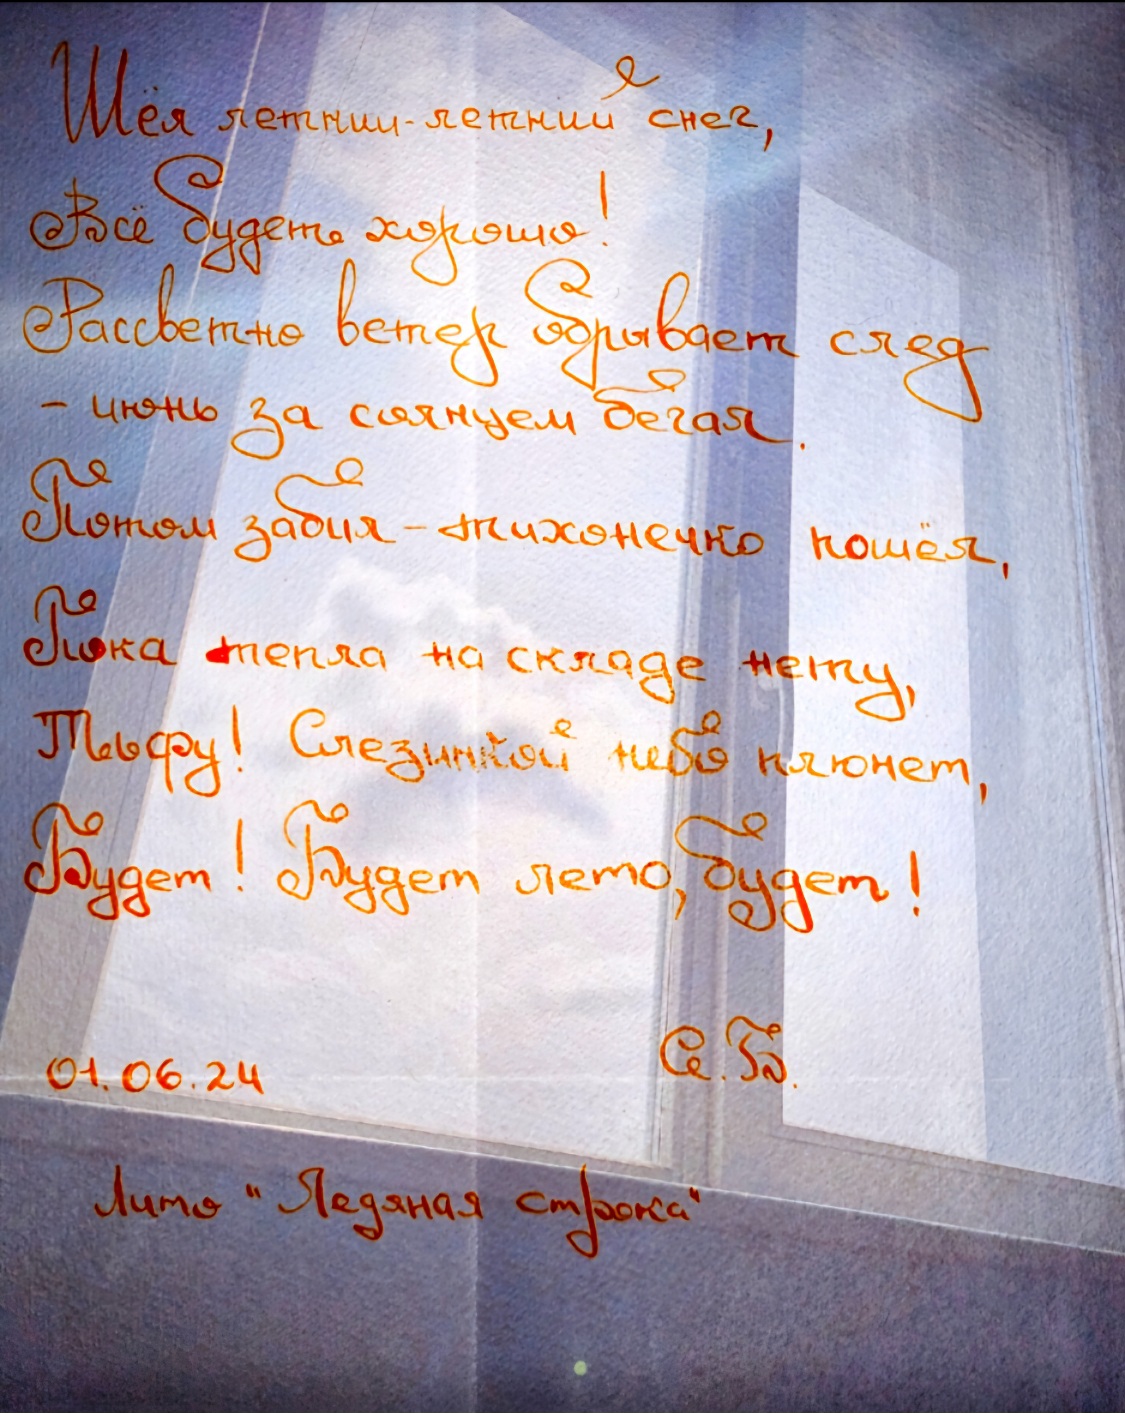 Шёл летний-летний снег,
Всё будет хорошо!
Рассветно ветер обрывает след
- июнь за солнцем бегал.
Потом забил - тихонечко пошёл,
Пока тепла на складе нету,
Тьфу! Слезинкой небо клюнет,
Будет! Будет лето, будет!
С.Б.
01.06.24
Лито "Ледяная строка"